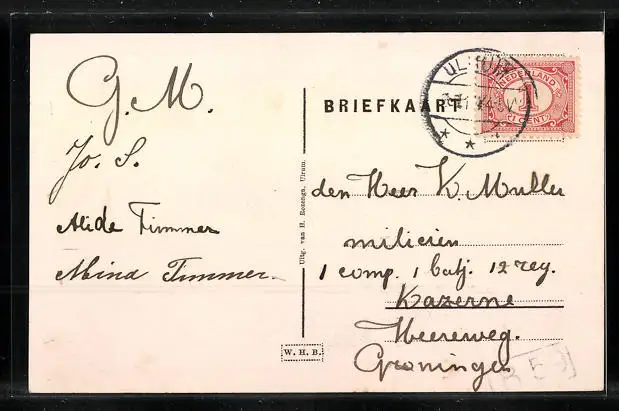 G. M.
Jo. S.
Alida Timmer
Mina Timmer.
Uitg. van H. Rozenga, Ulrum.
W. H. B.
BRIEFKAART
ULRUM
NEDERLAND
1
1 CENT
den Heer K. Muller
milicien
1 comp. 1 batj. 12 reg.
Kazerne
Heereweg.
Groningen